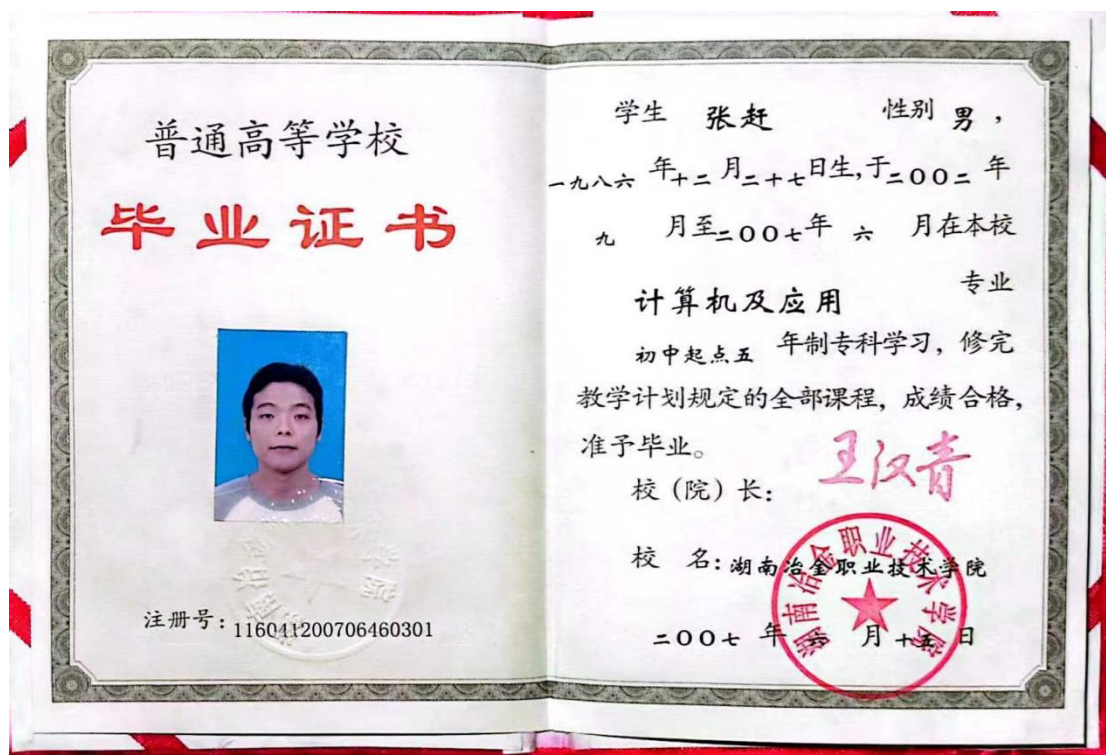 普通高等学校
毕业证书
注册号：116041200706460301
学生 张赶 性别 男，
一九八六 年十二月二十七日生,于二00二 年
九 月至二00七年 六 月在本校
计算机及应用 专业
初中起点五 年制专科学习，修完
教学计划规定的全部课程，成绩合格，
准予毕业。
校（院）长：王汉青
校 名：湖南冶金职业技术学院
二00七 年 六 月十五日
湖南冶金职业技术学院